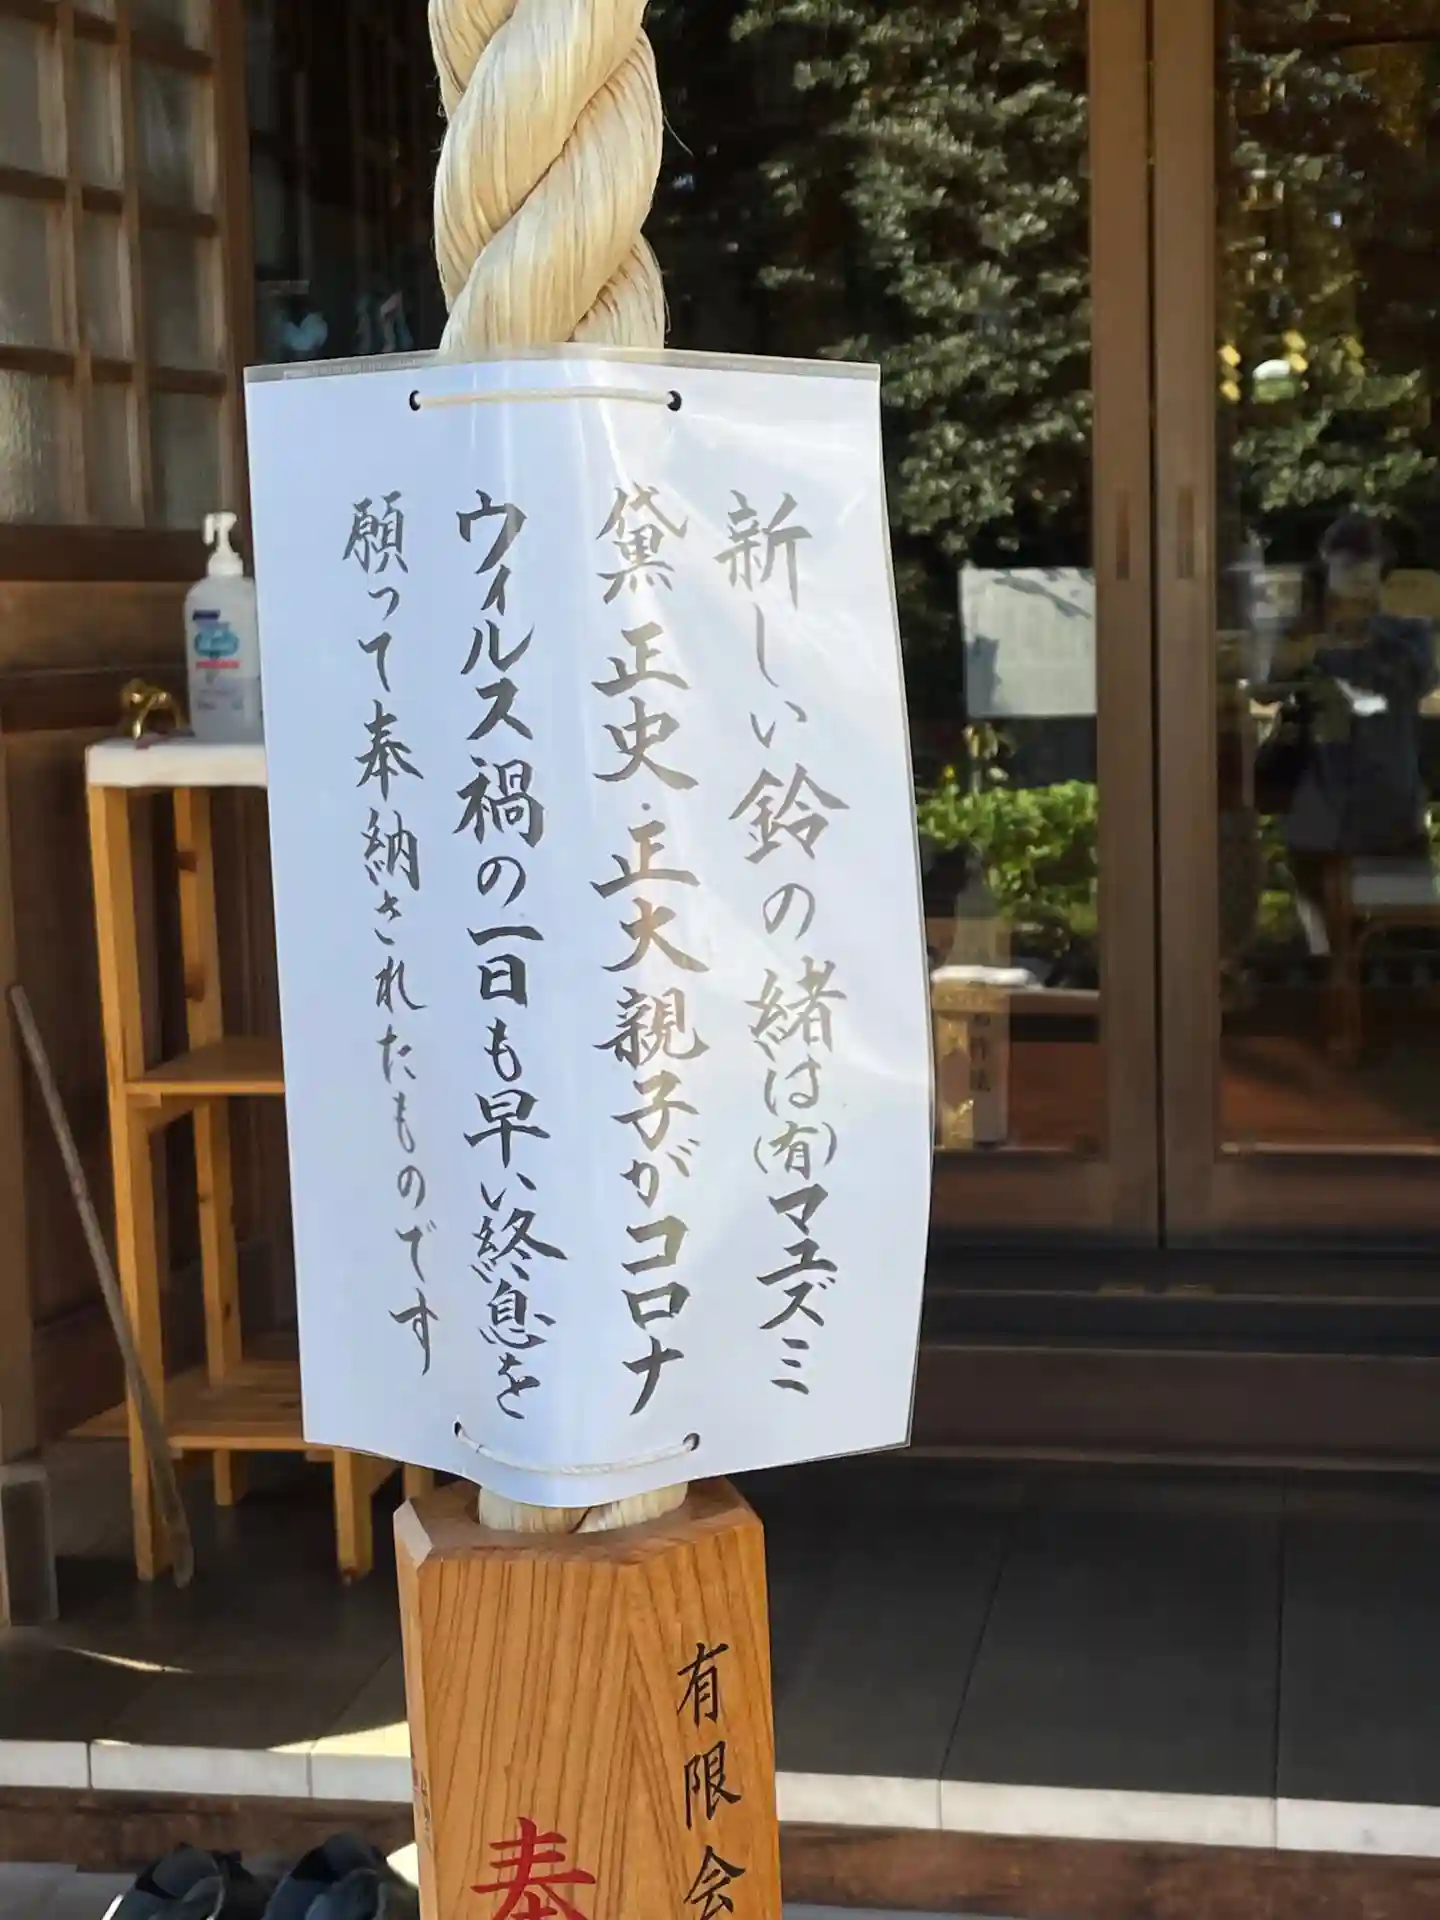 新しい鈴の緒は(有)マユズミ
黛正史・正大親子がコロナ
ウィルス禍の一日も早い終息を
願って奉納されたものです
有限会
奉